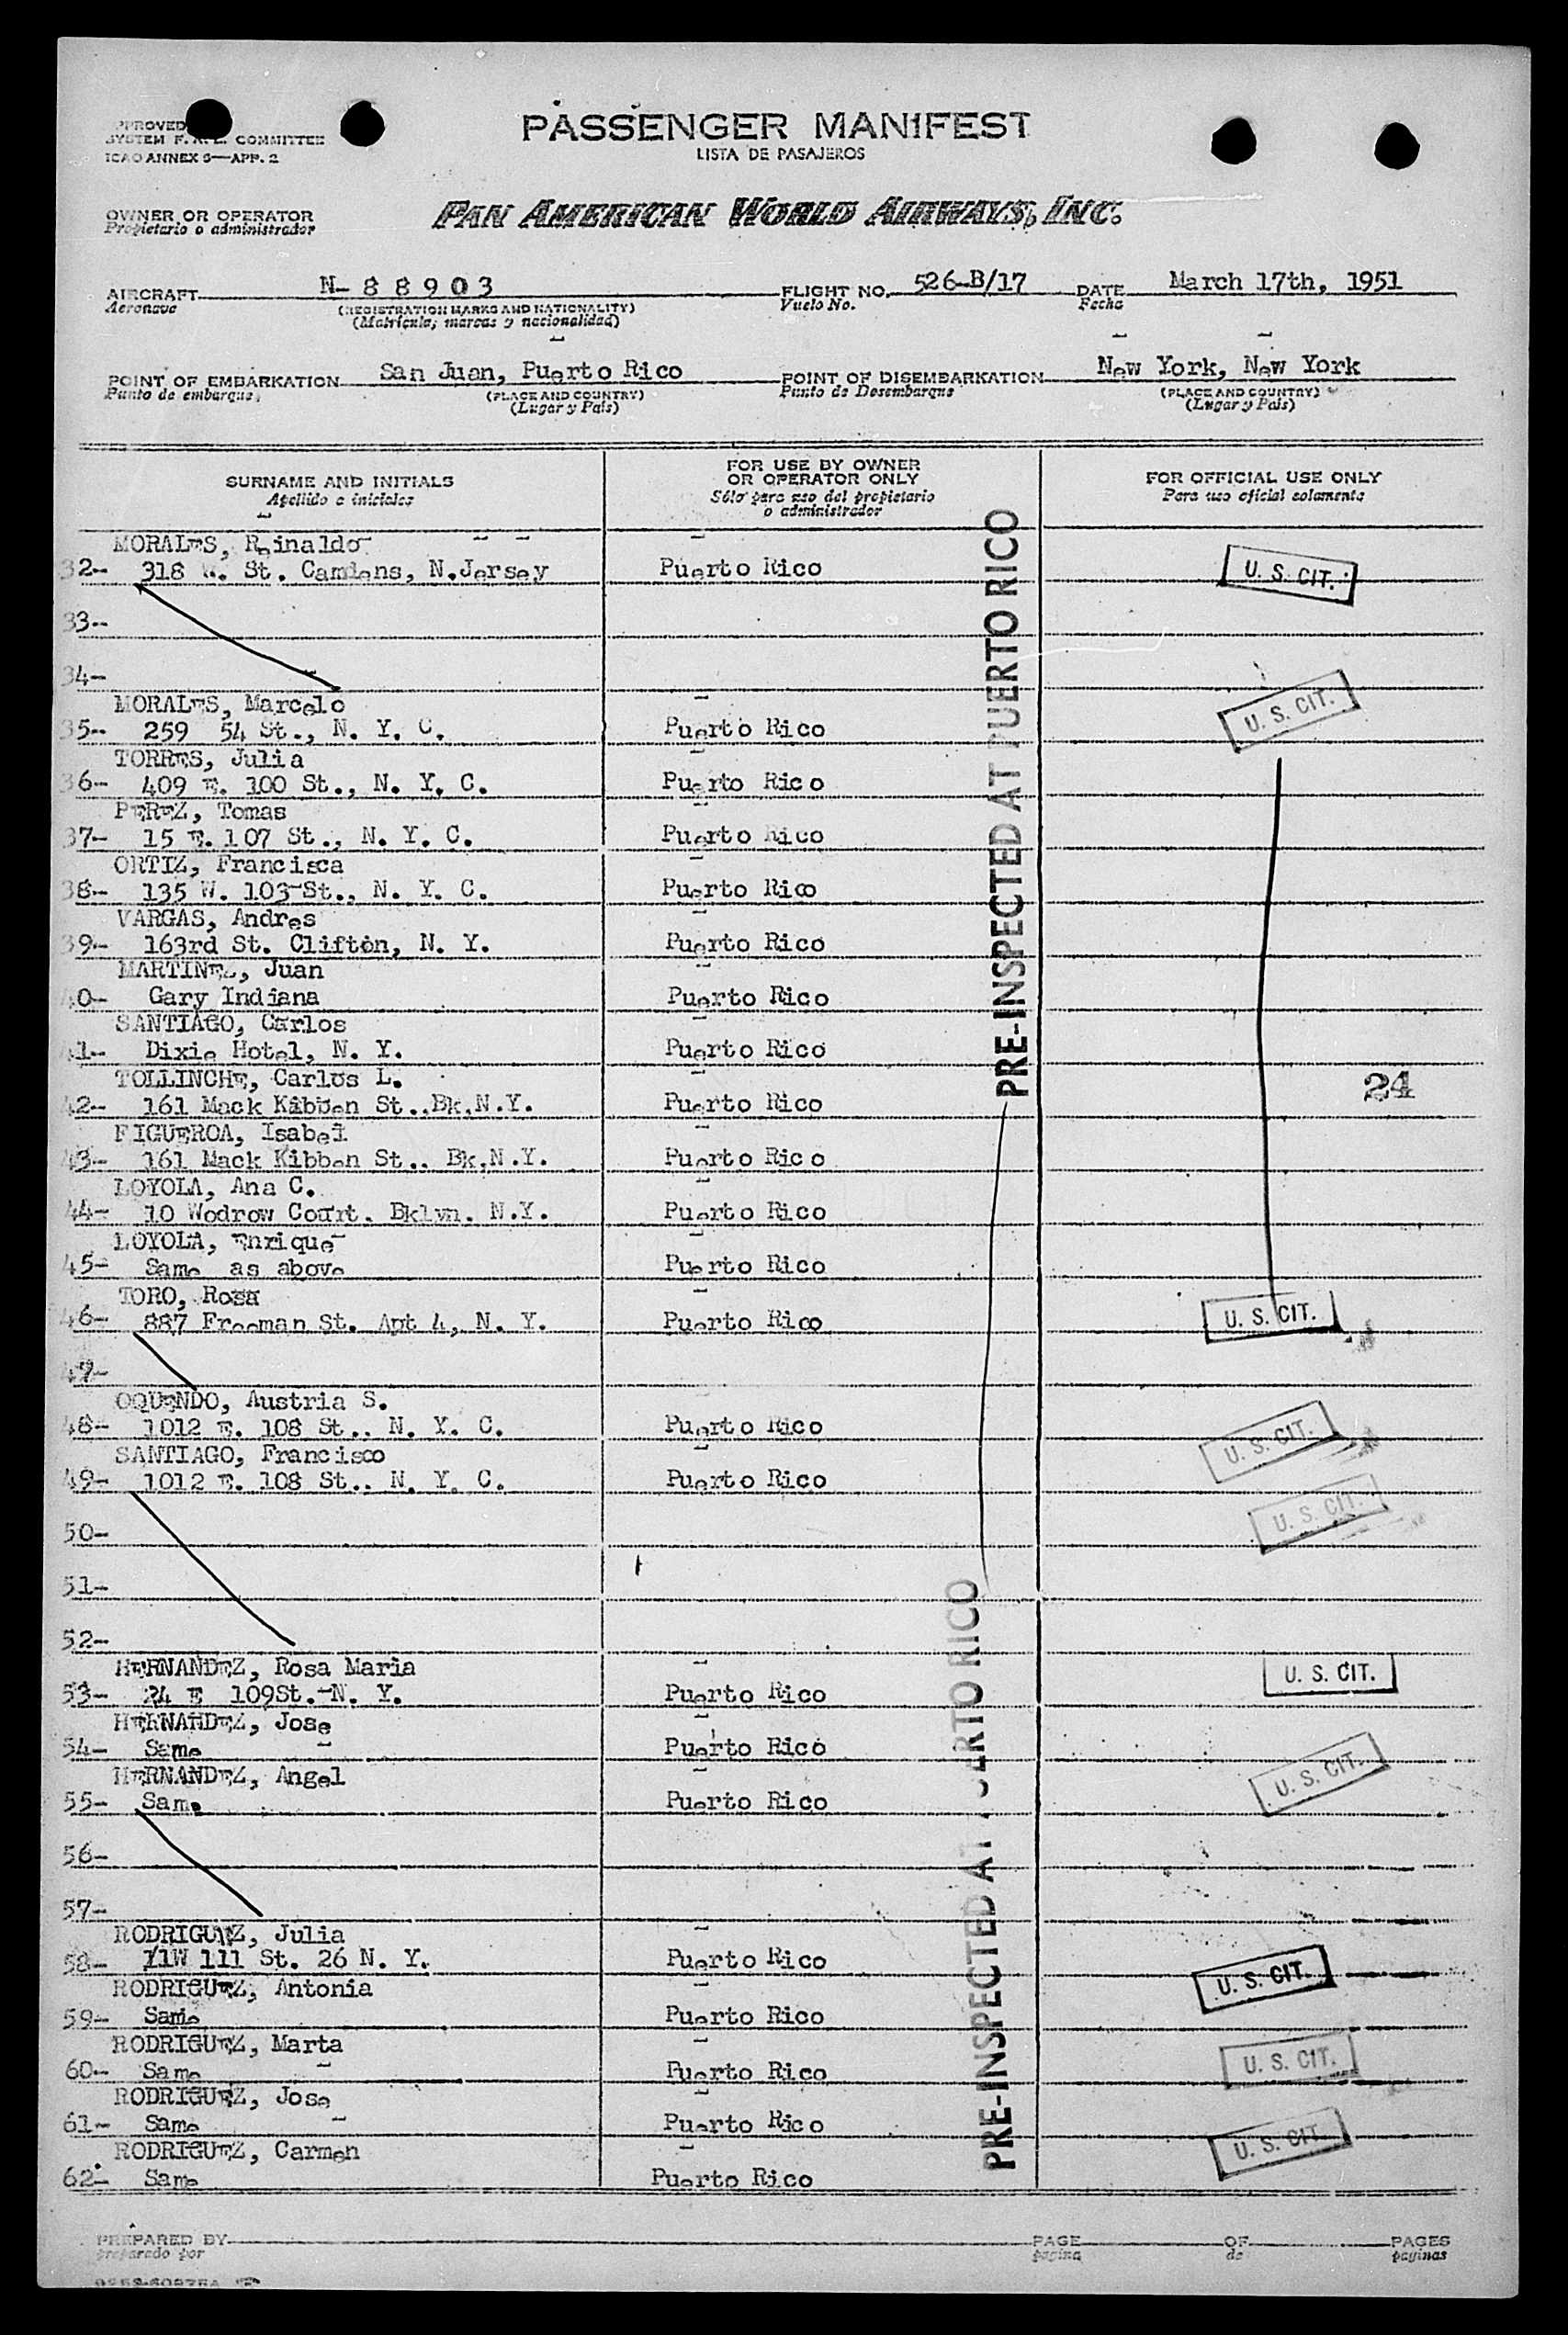 PASSENGER MANIFEST
LISTA DE PASAJEROS
APPROVED
SYSTEM F. A. L. COMMITTEE
ICAO ANNEX 9—APP. 2
OWNER OR OPERATOR
Propietario o administrador
PAN AMERICAN WORLD AIRWAYS, INC.
AIRCRAFT N-88903 FLIGHT NO. 526-B/17 DATE March 17th, 1951
Aeronave (REGISTRATION MARKS AND NATIONALITY) Vuelo No. Fecha
(Matrícula; marcas y nacionalidad)
POINT OF EMBARKATION San Juan, Puerto Rico POINT OF DISEMBARKATION New York, New York
Punto de embarque (PLACE AND COUNTRY) Punto de Desembarque (PLACE AND COUNTRY)
(Lugar y País) (Lugar y País)
SURNAME AND INITIALS FOR USE BY OWNER OR OPERATOR ONLY FOR OFFICIAL USE ONLY
Apellido e iniciales Sólo para uso del propietario o administrador Para uso oficial solamente
MORALES, Reinaldo
32- 318 W. St. Camdens, N.Jersey Puerto Rico U. S. CIT.
33-
34-
MORALES, Marcelo
35- 259 54 St., N. Y. C. Puerto Rico U. S. CIT.
TORRES, Julia
36- 409 E. 100 St., N. Y. C. Puerto Rico
PEREZ, Tomas
37- 15 E. 107 St., N. Y. C. Puerto Rico
ORTIZ, Francisca
38- 135 W. 103 St., N. Y. C. Puerto Rico
VARGAS, Andres
39- 163rd St. Clifton, N. Y. Puerto Rico
MARTINEZ, Juan
40- Gary Indiana Puerto Rico
SANTIAGO, Carlos
41- Dixie Hotel, N. Y. Puerto Rico
TOLLINCHE, Carlos L.
42- 161 Mack Kibben St..Bk.N.Y. Puerto Rico 24
FIGUEROA, Isabel
43- 161 Mack Kibben St.. Bk.N.Y. Puerto Rico
LOYOLA, Ana C.
44- 10 Wodrow Court. Bklyn. N.Y. Puerto Rico
LOYOLA, Enrique
45- Same as above Puerto Rico
TORO, Rosa
46- 887 Freeman St. Apt 4, N. Y. Puerto Rico U. S. CIT.
47-
OQUENDO, Austria S.
48- 1012 E. 108 St.. N. Y. C. Puerto Rico U. S. CIT.
SANTIAGO, Francisco
49- 1012 E. 108 St.. N. Y. C. Puerto Rico U. S. CIT.
50-
51-
52-
HERNANDEZ, Rosa Maria
53- 24 E 109St. N. Y. Puerto Rico U. S. CIT.
HERNANDEZ, Jose
54- Same Puerto Rico
HERNANDEZ, Angel
55- Same Puerto Rico U. S. CIT.
56-
57-
RODRIGUEZ, Julia
58- 71W 111 St. 26 N. Y. Puerto Rico U. S. CIT.
RODRIGUEZ, Antonia
59- Same Puerto Rico
RODRIGUEZ, Marta
60- Same Puerto Rico U. S. CIT.
RODRIGUEZ, Jose
61- Same Puerto Rico
RODRIGUEZ, Carmen
62- Same Puerto Rico U. S. CIT.
PRE-INSPECTED AT PUERTO RICO
PRE-INSPECTED AT PUERTO RICO
PREPARED BY PAGE OF PAGES
preparado por página de páginas